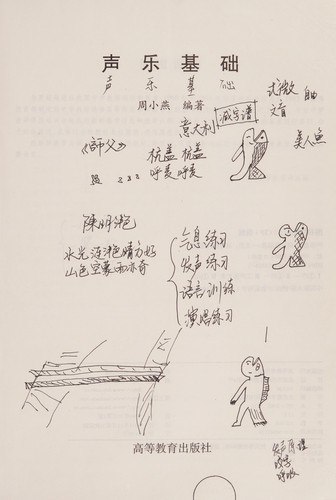 声乐基础
声乐基础
周小燕 编著
减字谱
自由
意大利
美人鱼
《师父》
呼麦 呼麦
陳明艳
水光潋滟晴方好
山色空蒙雨亦奇
气息练习
发声练习
语言训练
演唱练习
高等教育出版社